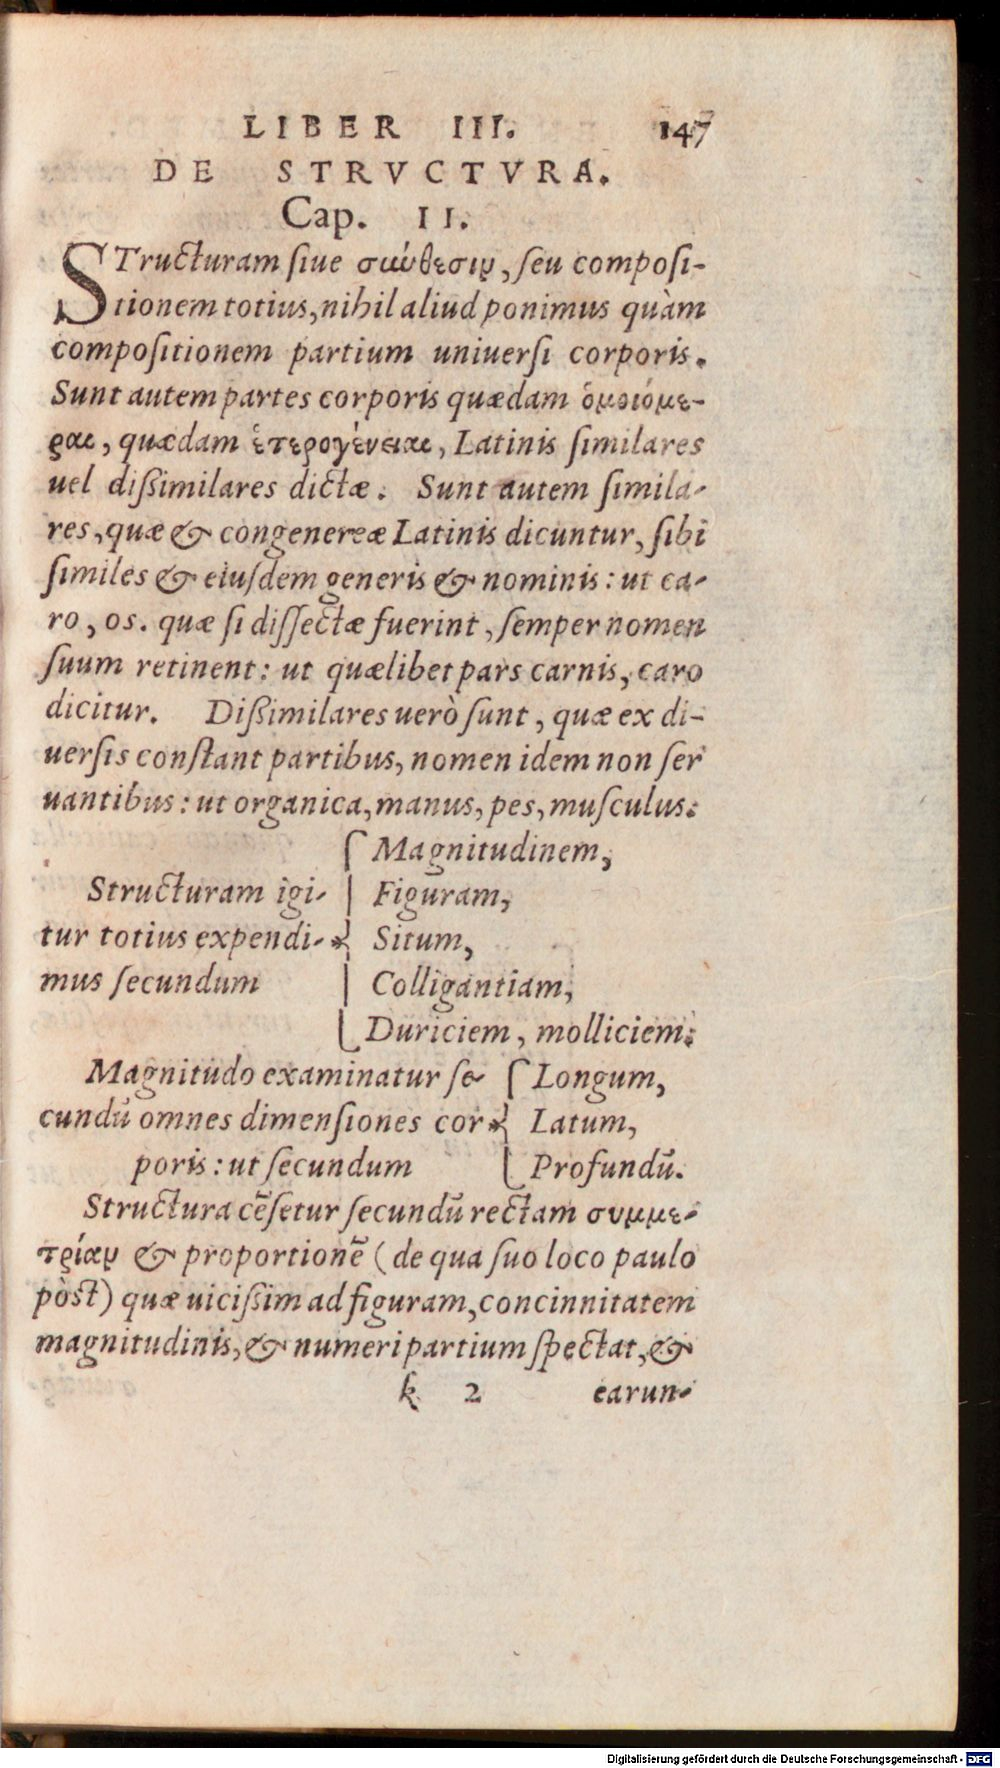 LIBER III. 147
DE STRVCTVRA.
Cap. II.
STructuram siue σύνθεσιν, seu composi-
tionem totius, nihil aliud ponimus quàm
compositionem partium uniuersi corporis.
Sunt autem partes corporis quædam ὁμοιόμε-
ραι, quædam ἑτερογένειαι, Latinis similares
uel dißimilares dictæ. Sunt autem simila-
res, quæ & congenereæ Latinis dicuntur, sibi
similes & eiusdem generis & nominis: ut ca-
ro, os. quæ si dissectæ fuerint, semper nomen
suum retinent: ut quælibet pars carnis, caro
dicitur. Dißimilares uerò sunt, quæ ex di-
uersis constant partibus, nomen idem non ser
uantibus: ut organica, manus, pes, musculus.
Magnitudinem,
Structuram igi- Figuram,
tur totius expendi- Situm,
mus secundum Colligantiam,
Duriciem, molliciem.
Magnitudo examinatur se- Longum,
cundū omnes dimensiones cor- Latum,
poris: ut secundum Profundū.
Structura cēsetur secundū rectam συμμε-
τρίαν & proportionē (de qua suo loco paulo
pòst) quæ uicißim ad figuram, concinnitatem
magnitudinis, & numeri partium spectat, &
k 2 earun-
Digitalisierung gefördert durch die Deutsche Forschungsgemeinschaft - DFG